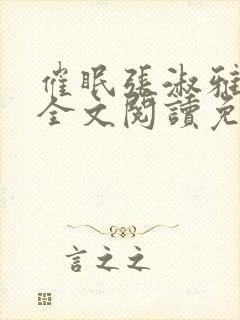 催眠張淑雅
全文閱讀免
言之之